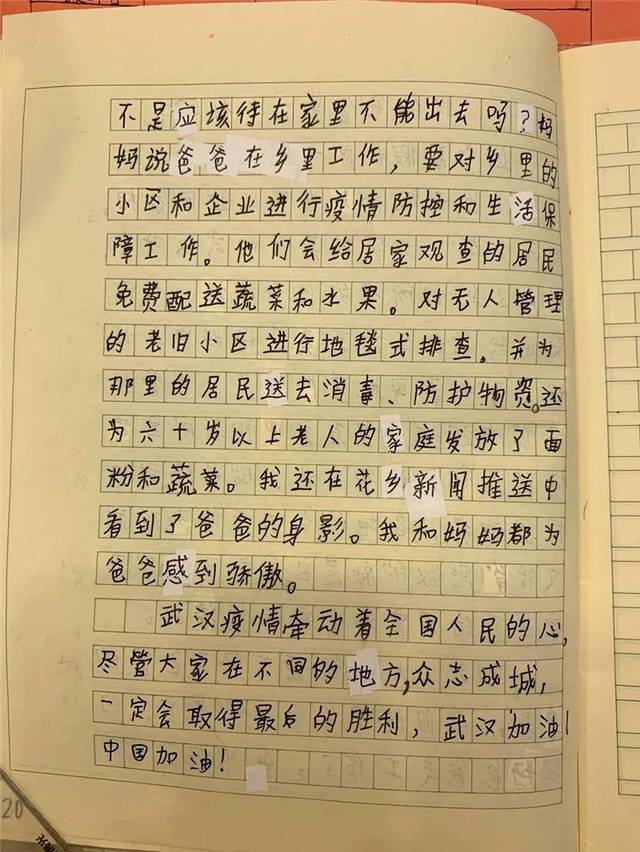 不是应该待在家里不能出去吗？妈
妈说爸爸在乡里工作，要对乡里的
小区和企业进行疫情防控和生活保
障工作。他们会给居家观查的居民
免费配送蔬菜和水果。对无人管理
的老旧小区进行地毯式排查。并为
那里的居民送去消毒、防护物资。还
为六十岁以上老人的家庭发放了面
粉和蔬菜。我还在花乡新闻推送中
看到了爸爸的身影。我和妈妈都为
爸爸感到骄傲。
武汉疫情牵动着全国人民的心，
尽管大家在不同的地方，众志成城，
一定会取得最后的胜利，武汉加油！
中国加油！
20